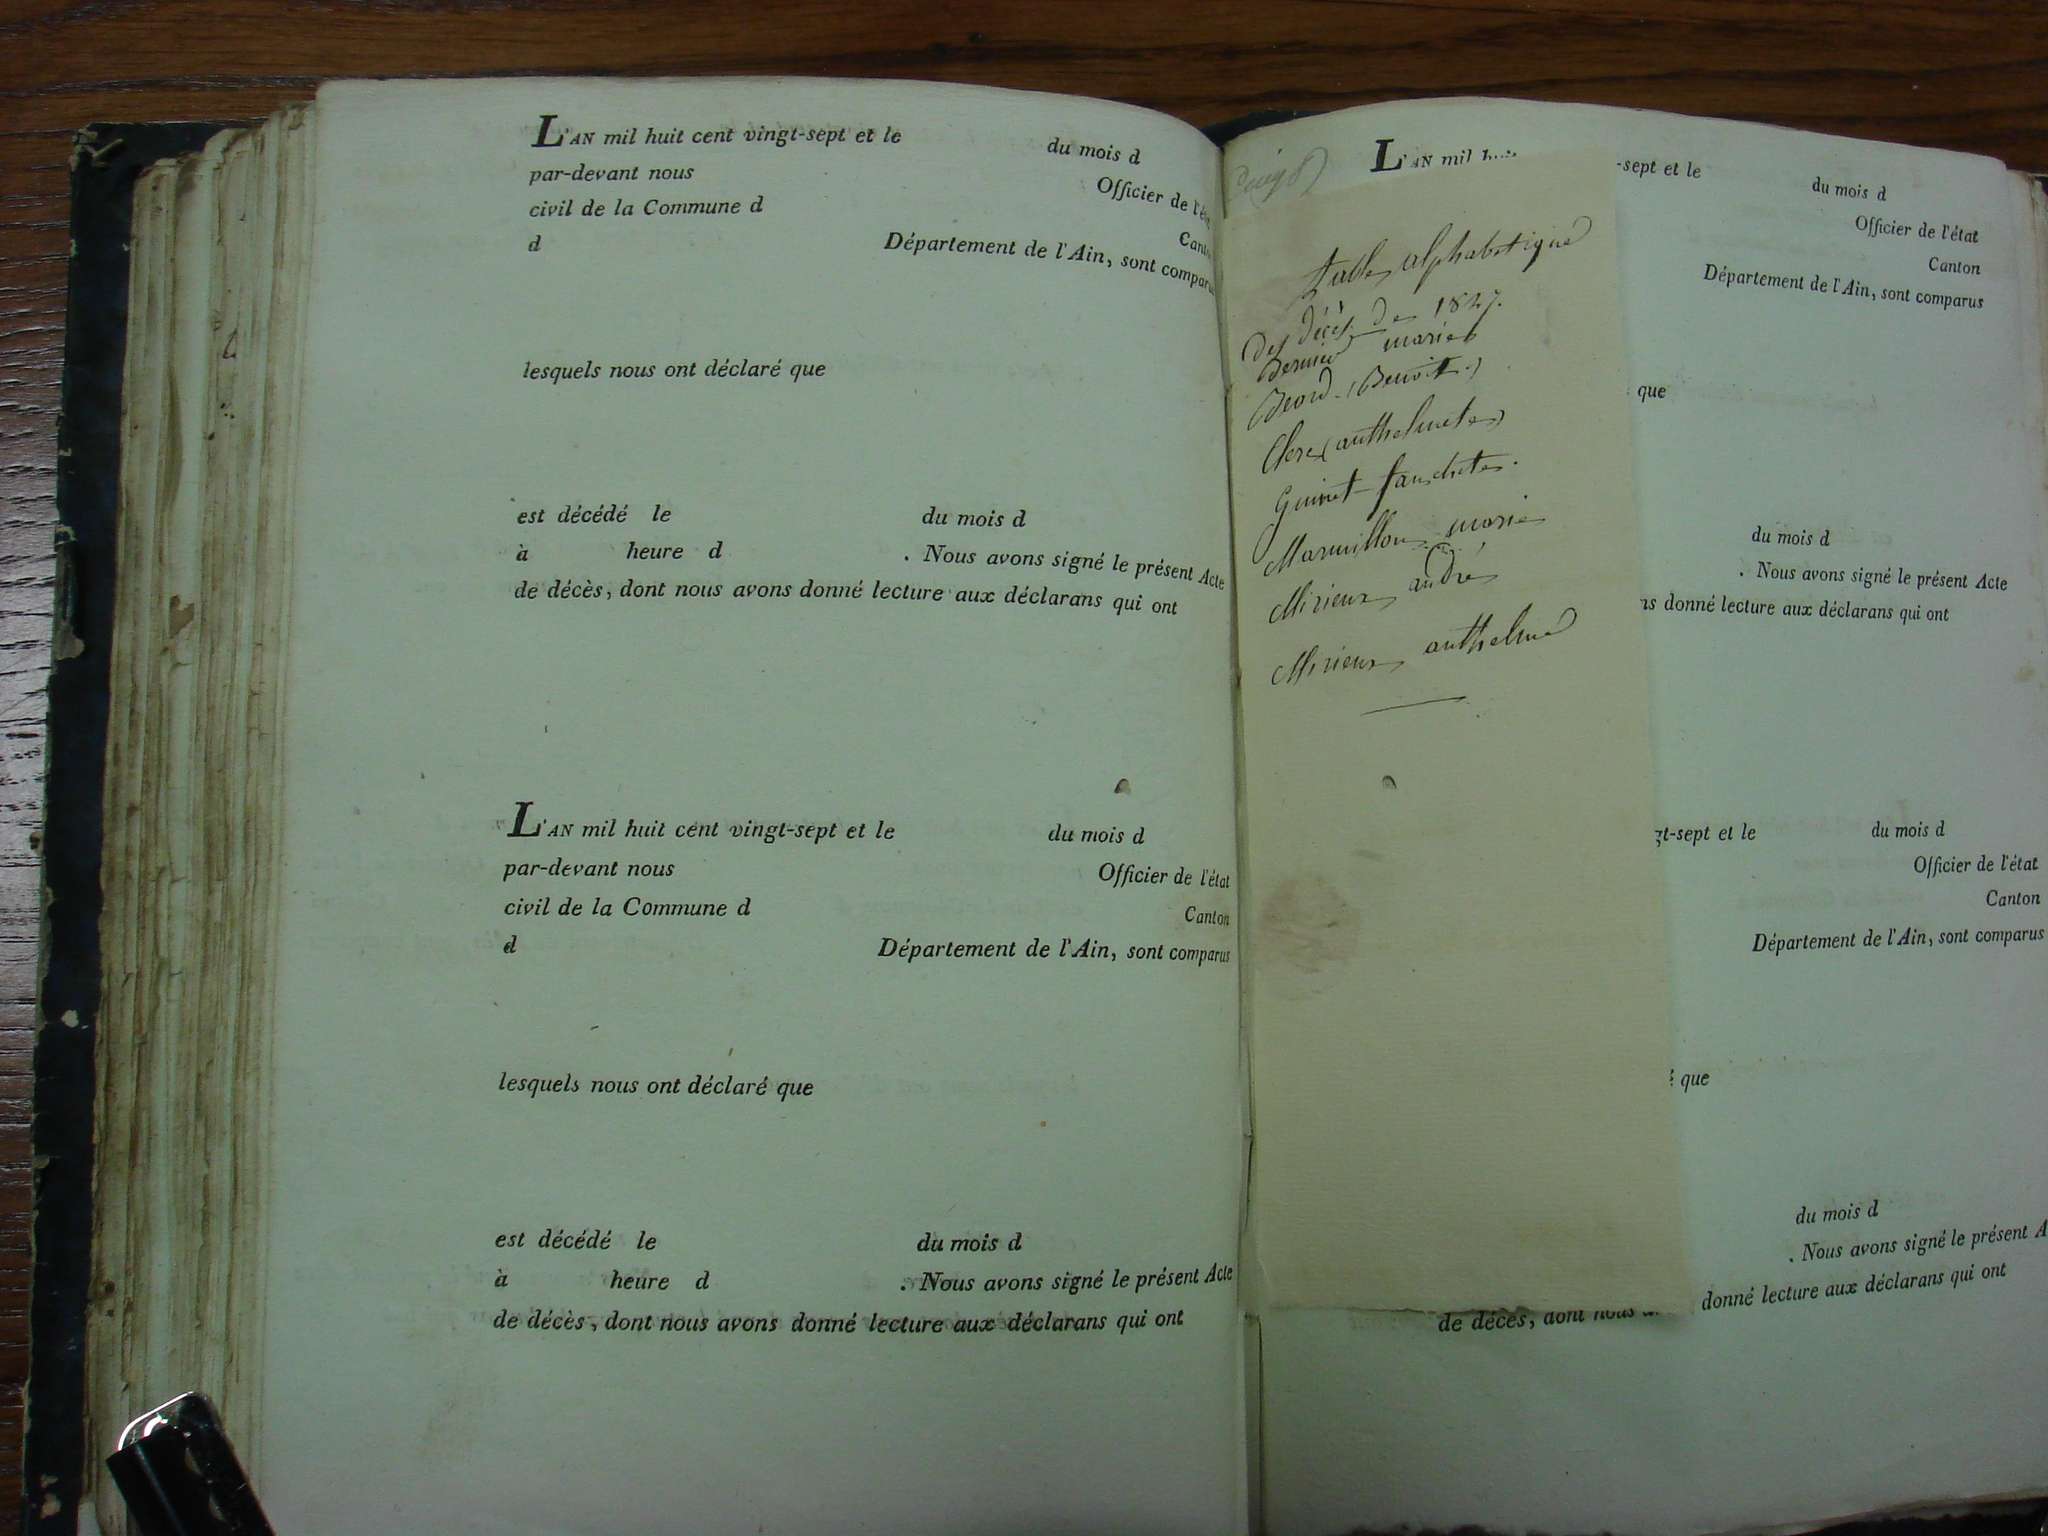 L'AN mil huit cent vingt-sept et le du mois d
par-devant nous Officier de l'état
civil de la Commune d Canton
d Département de l'Ain, sont comparus
lesquels nous ont déclaré que
est décédé le du mois d
à heure d . Nous avons signé le présent Acte
de décès, dont nous avons donné lecture aux déclarans qui ont
L'AN mil huit cent vingt-sept et le du mois d
par-devant nous Officier de l'état
civil de la Commune d Canton
d Département de l'Ain, sont comparus
lesquels nous ont déclaré que
est décédé le du mois d
à heure d . Nous avons signé le présent Acte
de décès, dont nous avons donné lecture aux déclarans qui ont
table alphabétique
des décès de 1827.
Bernier marie
Beord (Benoit)
Clerc (anthelmete)
Guinet fanchete.
Marmillon marie
Mirieux andré
Mirieux anthelme
L'AN mil -sept et le du mois d
Officier de l'état
Canton
Département de l'Ain, sont comparus
que
du mois d
. Nous avons signé le présent Acte
donné lecture aux déclarans qui ont
gt-sept et le du mois d
Officier de l'état
Canton
Département de l'Ain, sont comparus
é que
du mois d
. Nous avons signé le présent A
de décès, dont nous donné lecture aux déclarans qui ont